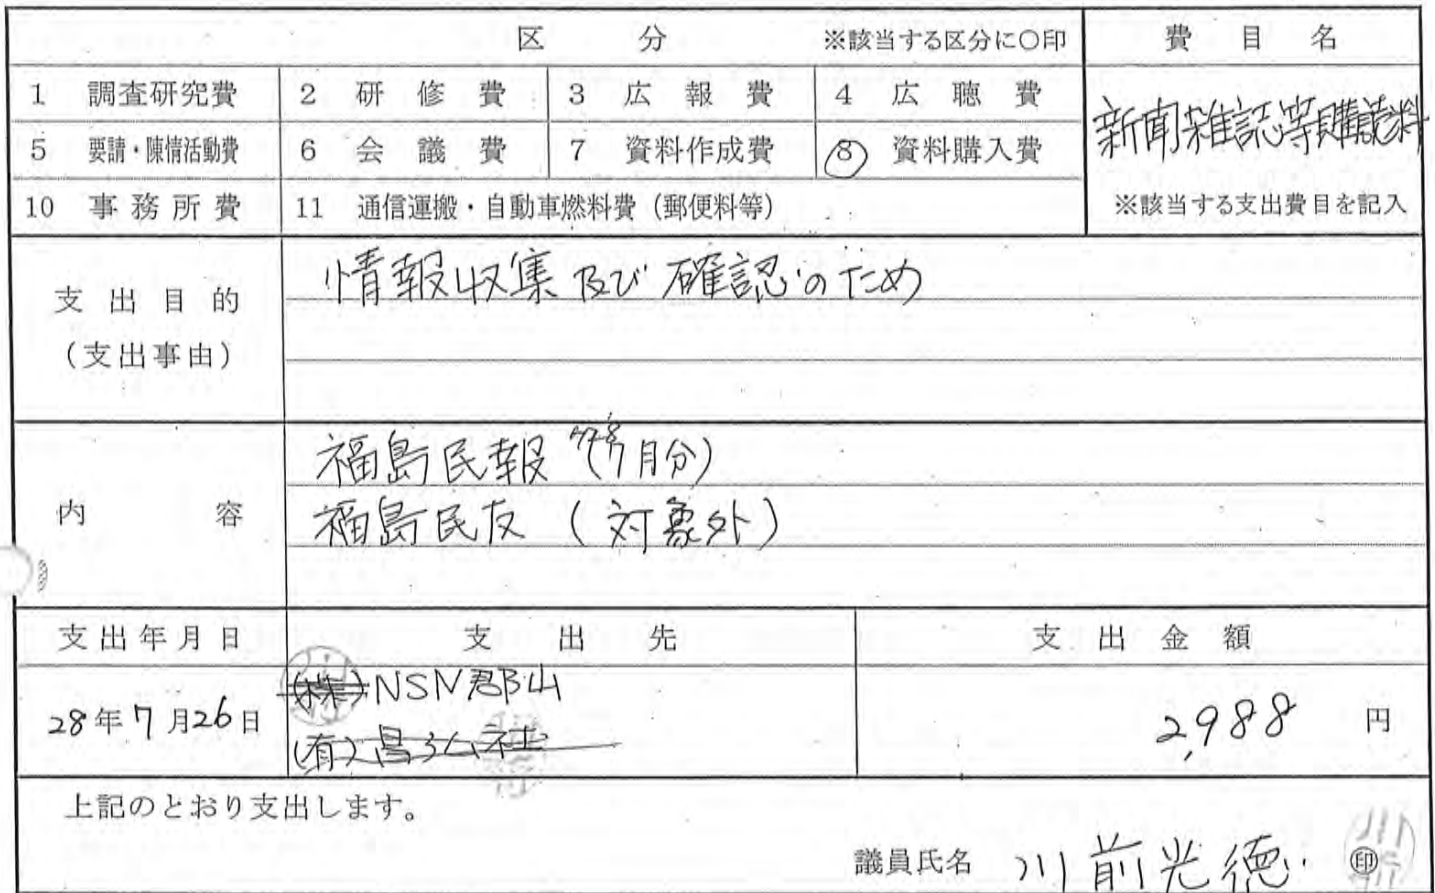 区 分 ※該当する区分に○印 費目名
1 調査研究費 2 研修費 3 広報費 4 広聴費
新聞雑誌等購読料
5 要請・陳情活動費 6 会議費 7 資料作成費 8 資料購入費
10 事務所費 11 通信運搬・自動車燃料費（郵便料等） ※該当する支出費目を記入
支出目的
（支出事由）
情報収集及び確認のため
内容
福島民報 (7月分)
福島民友 (対象外)
支出年月日 支出先 支出金額
28年7月26日
(株)NSN郡山
(有)
2,988 円
上記のとおり支出します。
議員氏名 川前光徳 印